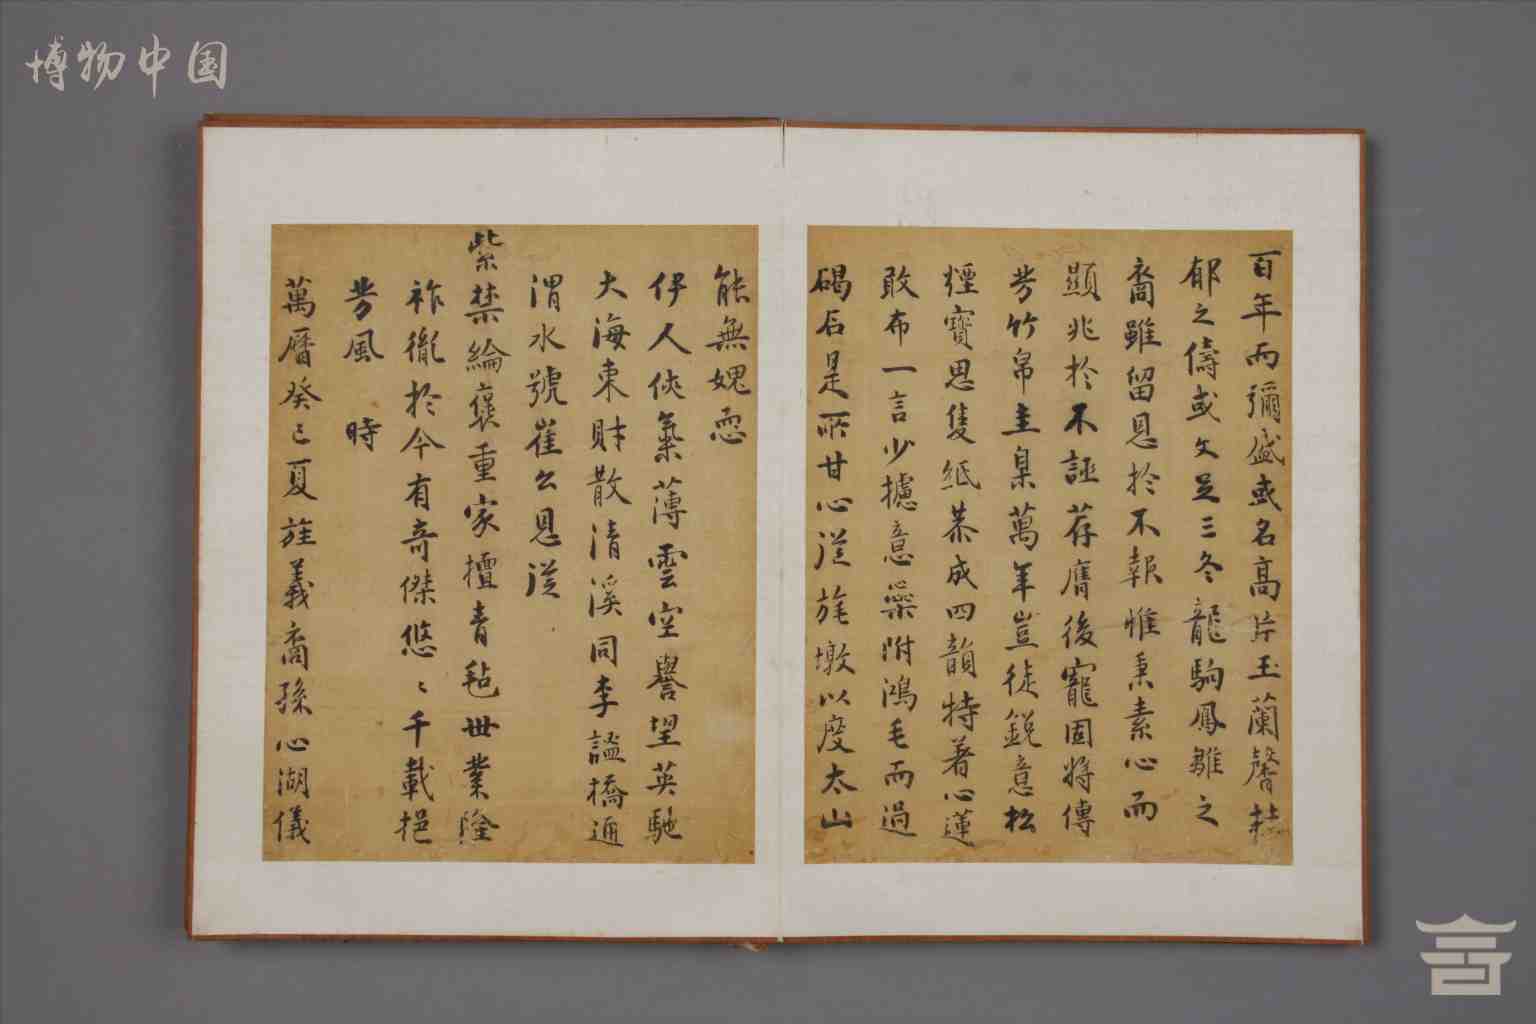 博物中国
百年而彌盛或名高片玉蘭馨桂
郁之儔或文足三冬龍駒鳳雛之
裔雖留恩於不報惟秉素心而
顯兆於不誣荐膺後寵固將傳
芳竹帛圭臬萬年豈徒銳意松
煙寶思隻紙恭成四韻特著心蓮
敢布一言少攄意蘂附鴻毛而過
碣石是所甘心從旄墩以度太山
能無媿恧
伊人俠氣薄雲空譽望英馳
大海東財散清溪同李謐橋通
渭水號崔公恩從
紫禁綸褒重家擅青毡世業隆
祚徹於今有奇傑悠〻千載挹
芳風 時
萬曆癸巳夏旌義裔孫心湖儀